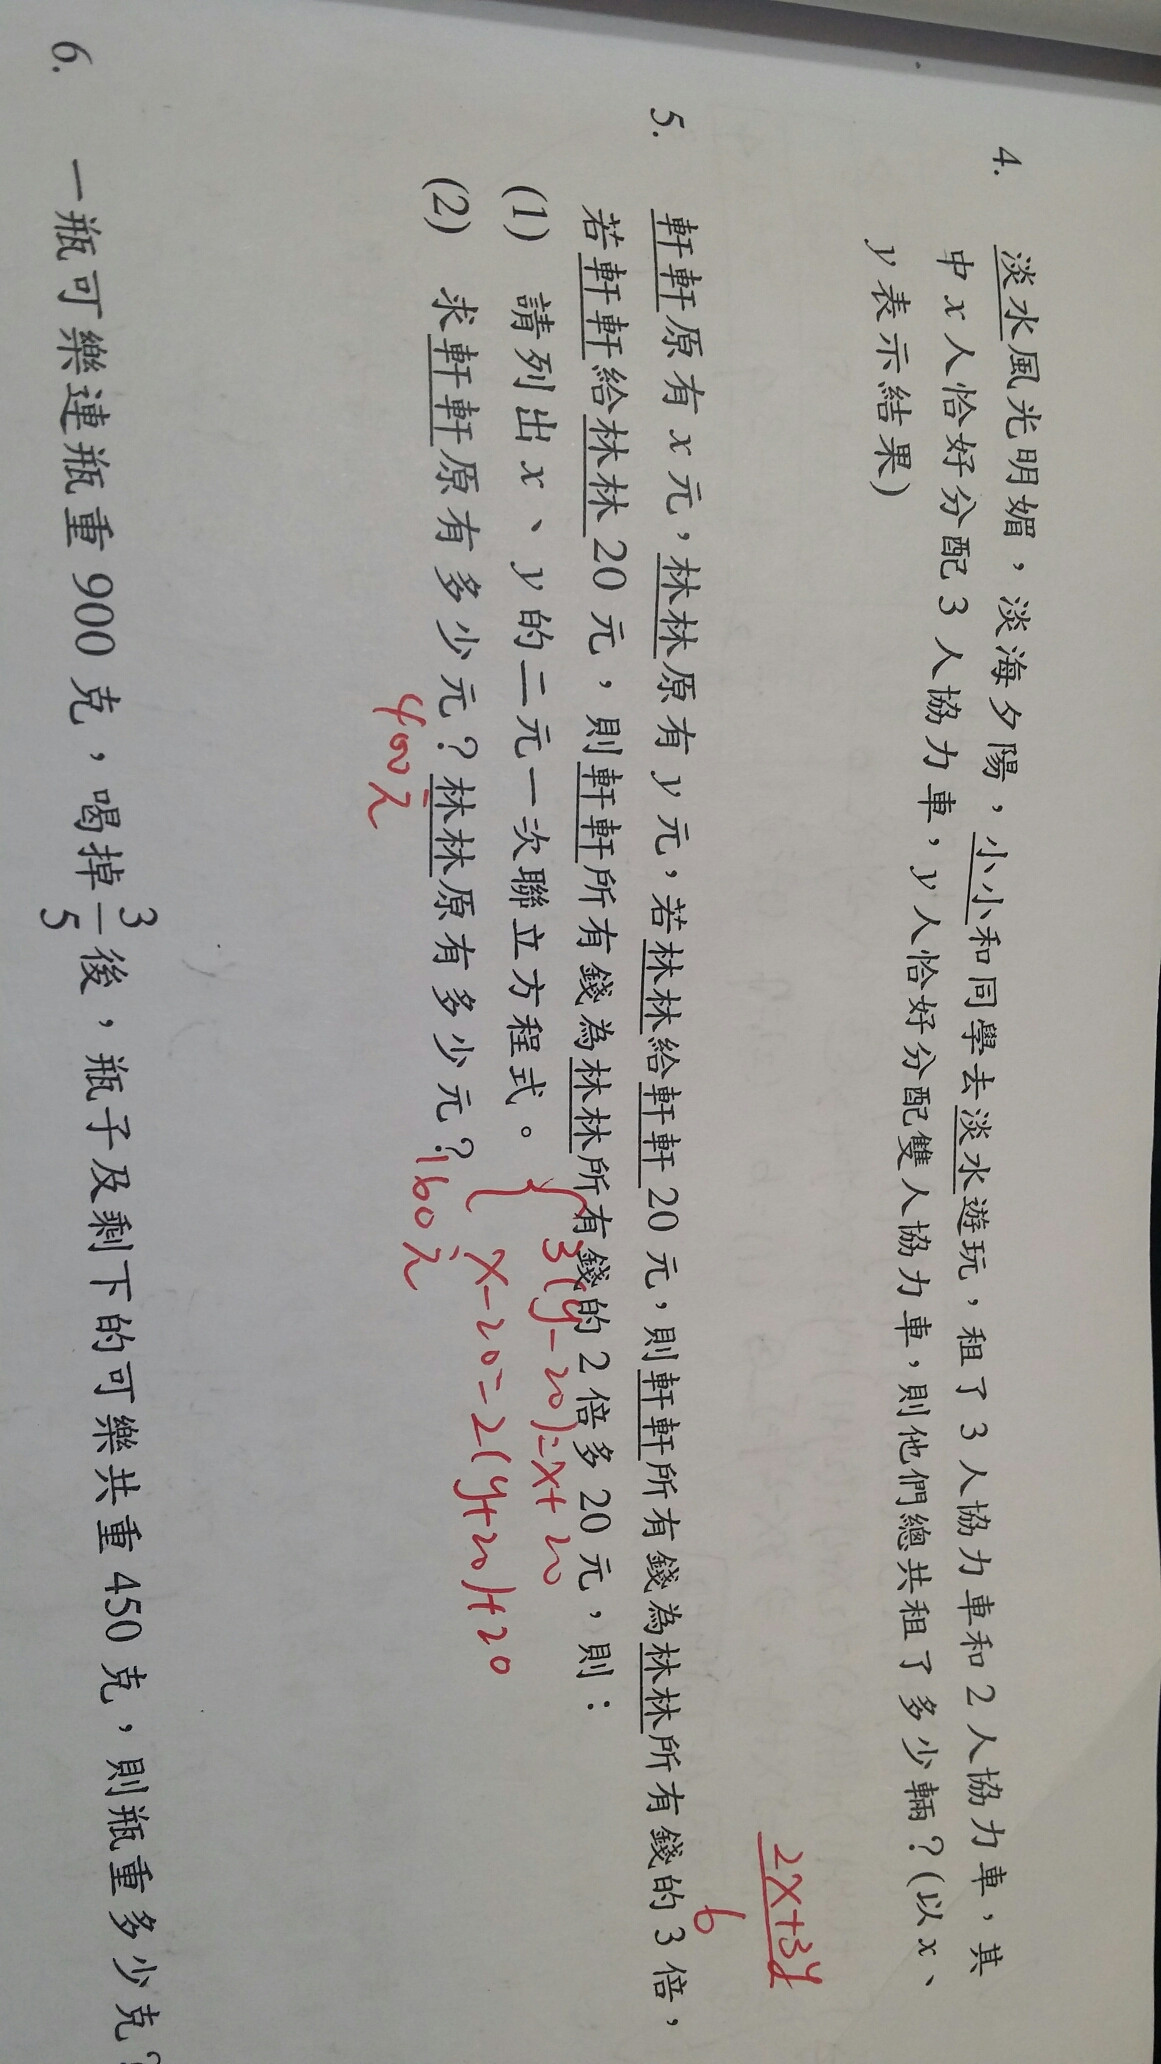 4. 淡水風光明媚，淡海夕陽，小小和同學去淡水遊玩，租了3人協力車和2人協力車，其
中x人恰好分配3人協力車，y人恰好分配雙人協力車，則他們總共租了多少輛？(以x、
y表示結果)
2x+3y
6
5. 軒軒原有x元，林林原有y元，若林林給軒軒20元，則軒軒所有錢為林林所有錢的3倍，
若軒軒給林林20元，則軒軒所有錢為林林所有錢的2倍多20元，則：
(1) 請列出x、y的二元一次聯立方程式。
3(y-20)=x+20
x-20=2(y+20)+20
(2) 求軒軒原有多少元？林林原有多少元？
400元
160元
6. 一瓶可樂連瓶重900克，喝掉3/5後，瓶子及剩下的可樂共重450克，則瓶重多少克？